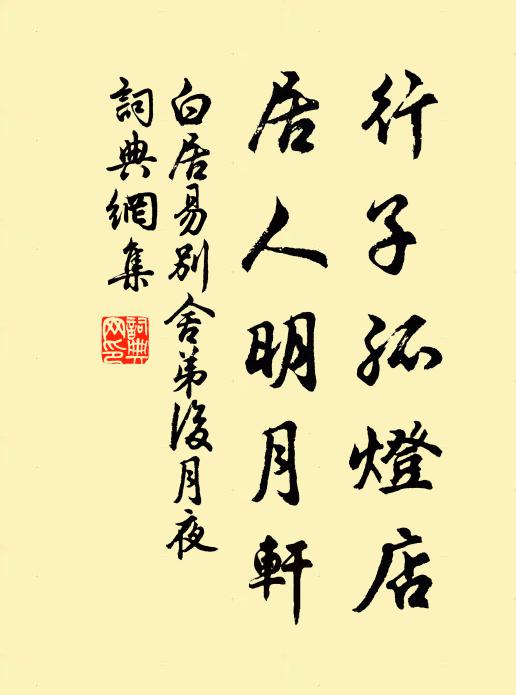 行子孤燈店
居人明月軒
白居易別舍弟後月夜
詞典網集
詞典網印